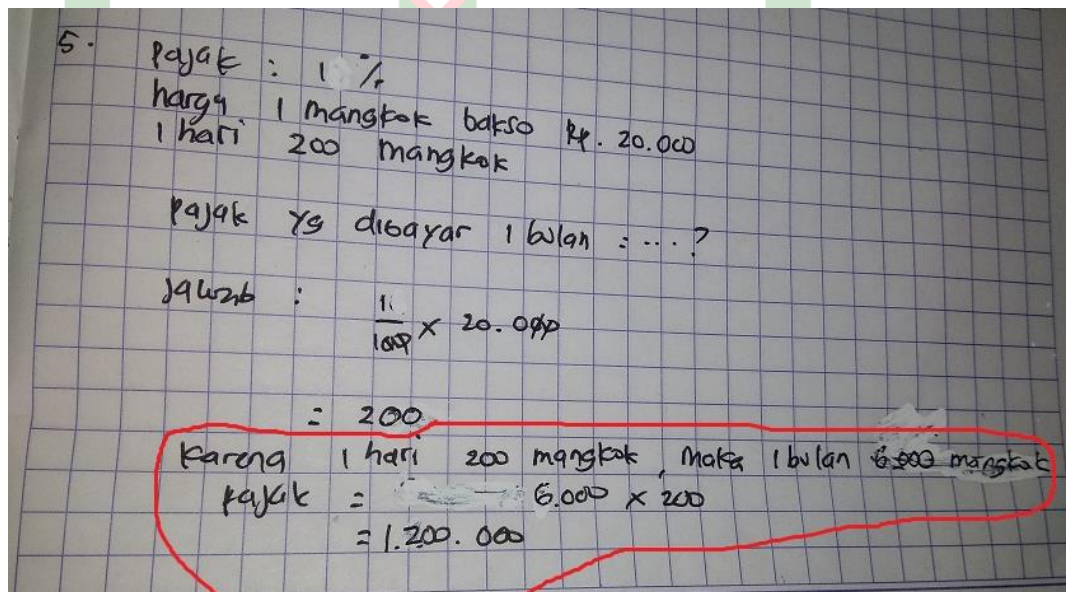 5. Pajak : 1 %
harga 1 mangkok bakso Rp. 20.000
1 hari 200 mangkok
Pajak yg dibayar 1 bulan : ... ?
Jawab :
1/100 × 20.000
= 200
Karena 1 hari 200 mangkok, maka 1 bulan 6.000 mangkok
pajak = 6.000 × 200
= 1.200.000